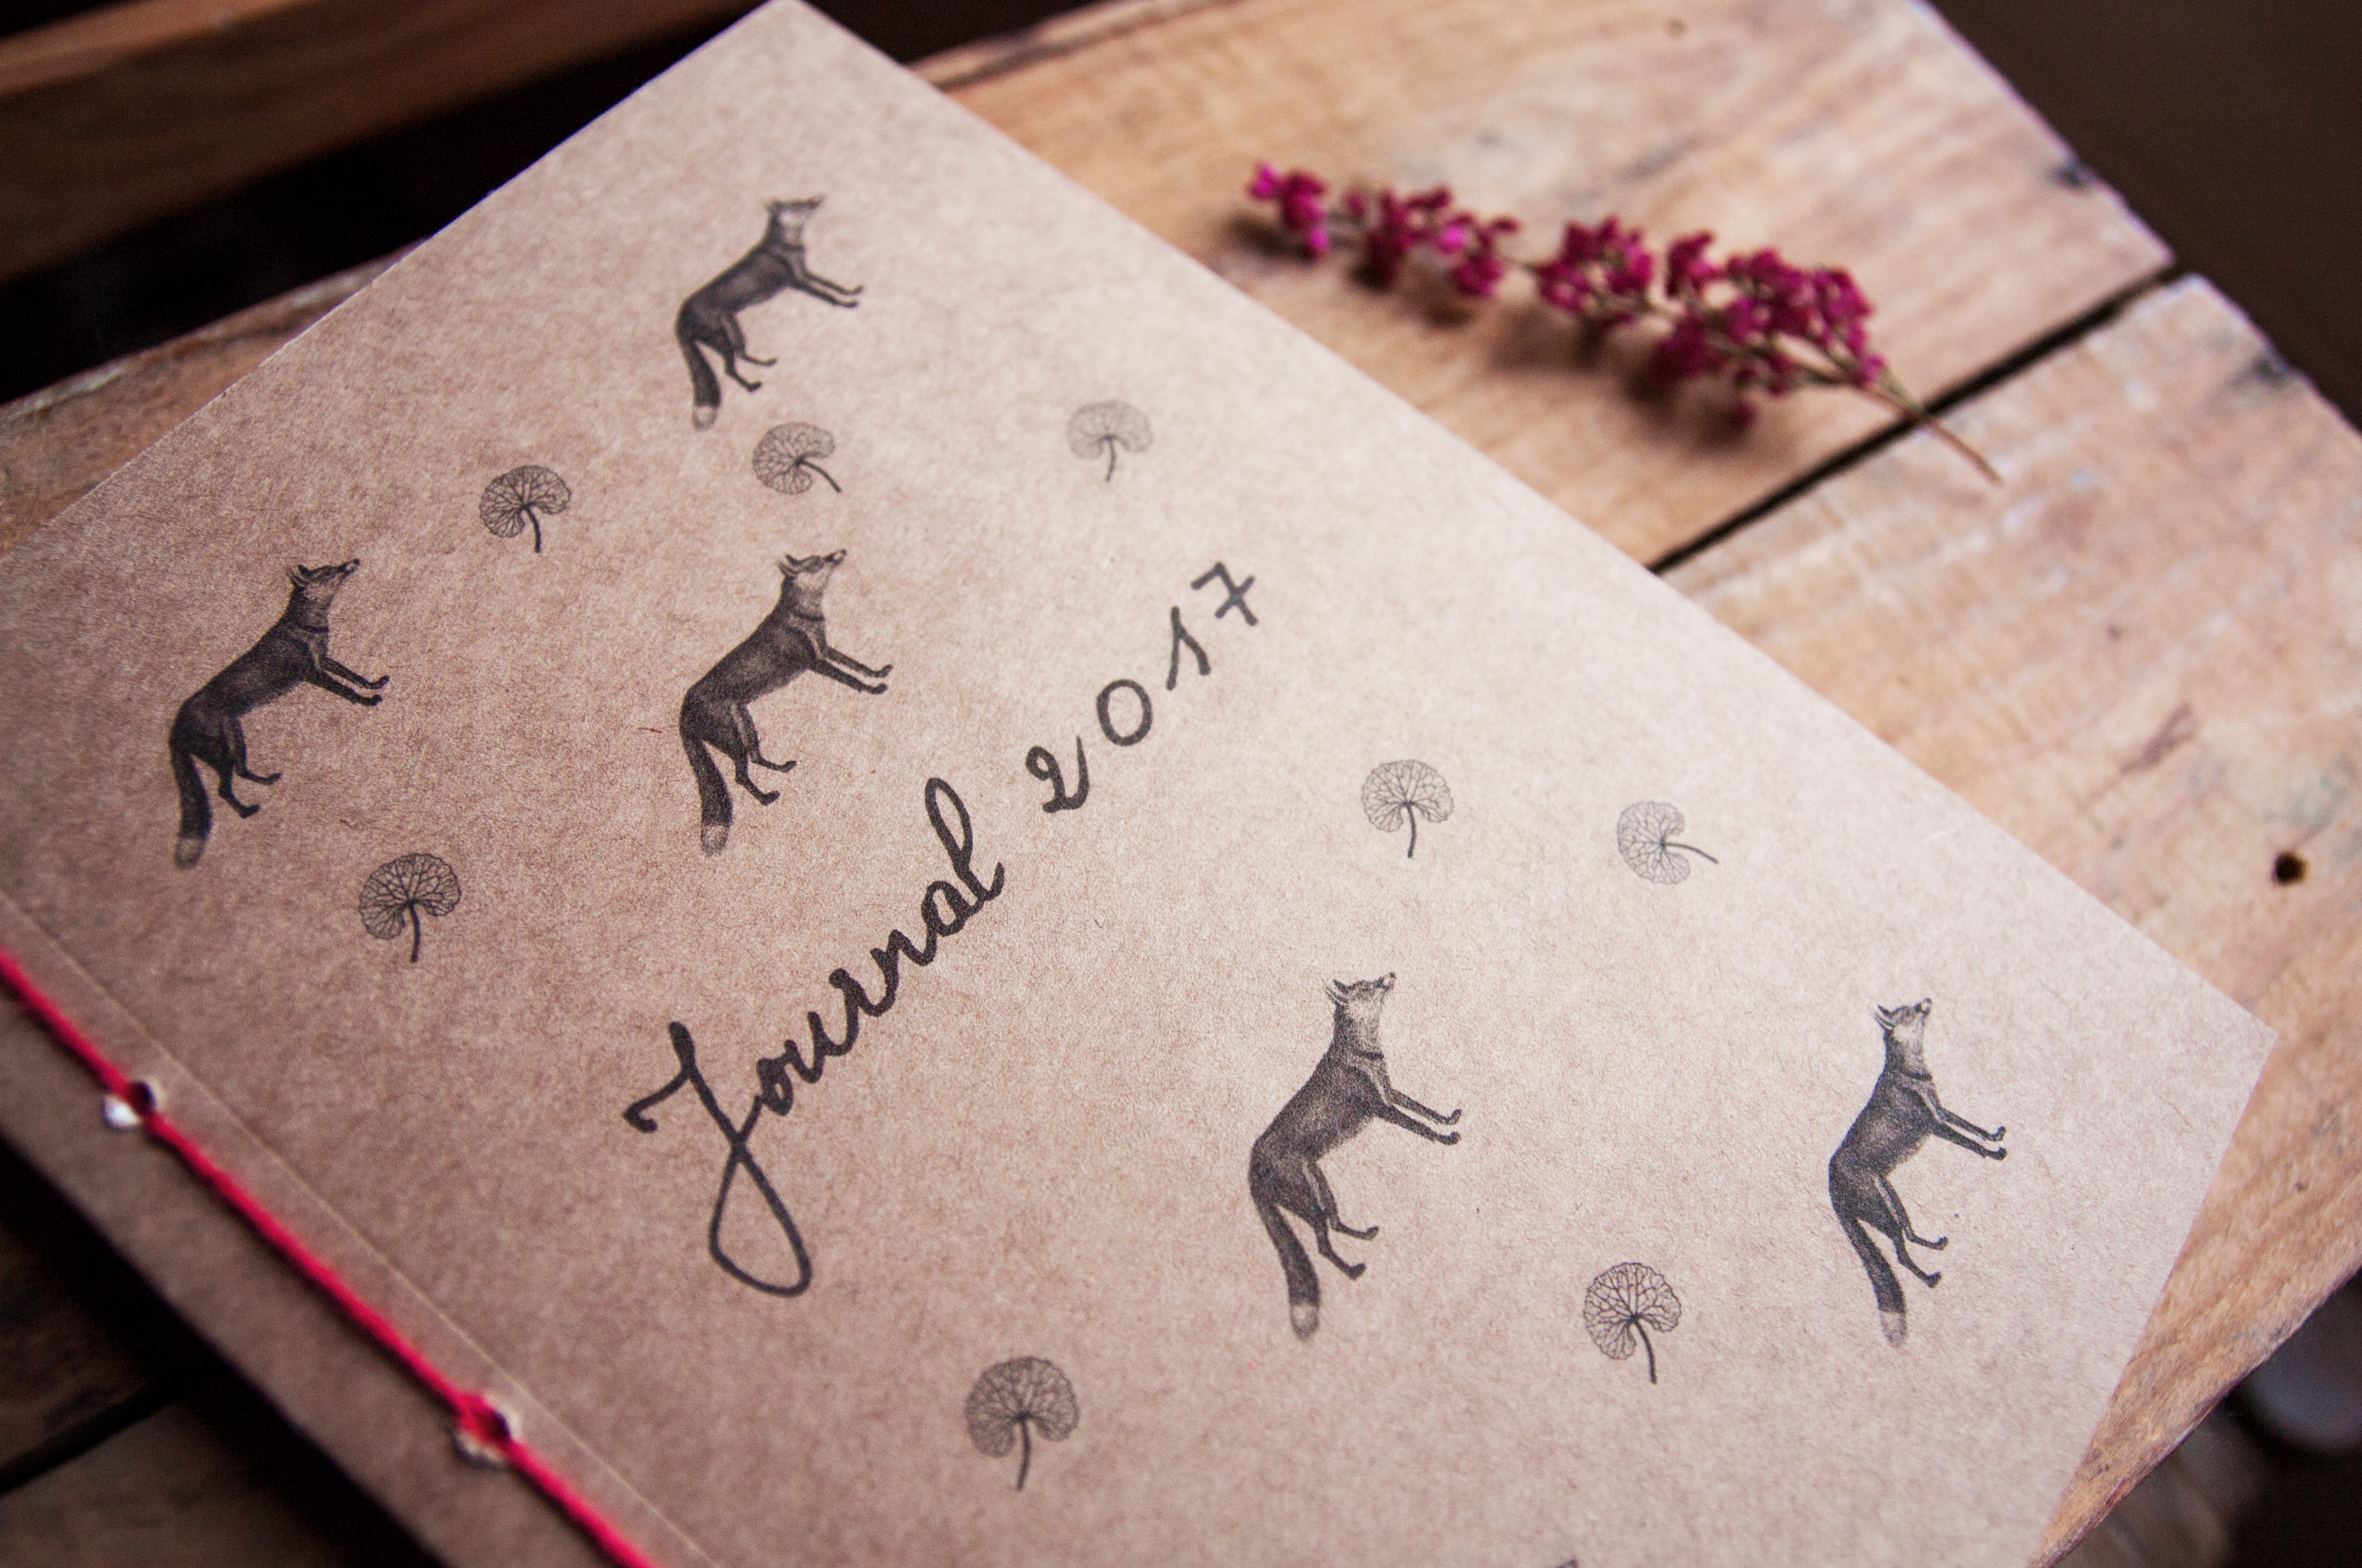 Journal 2017